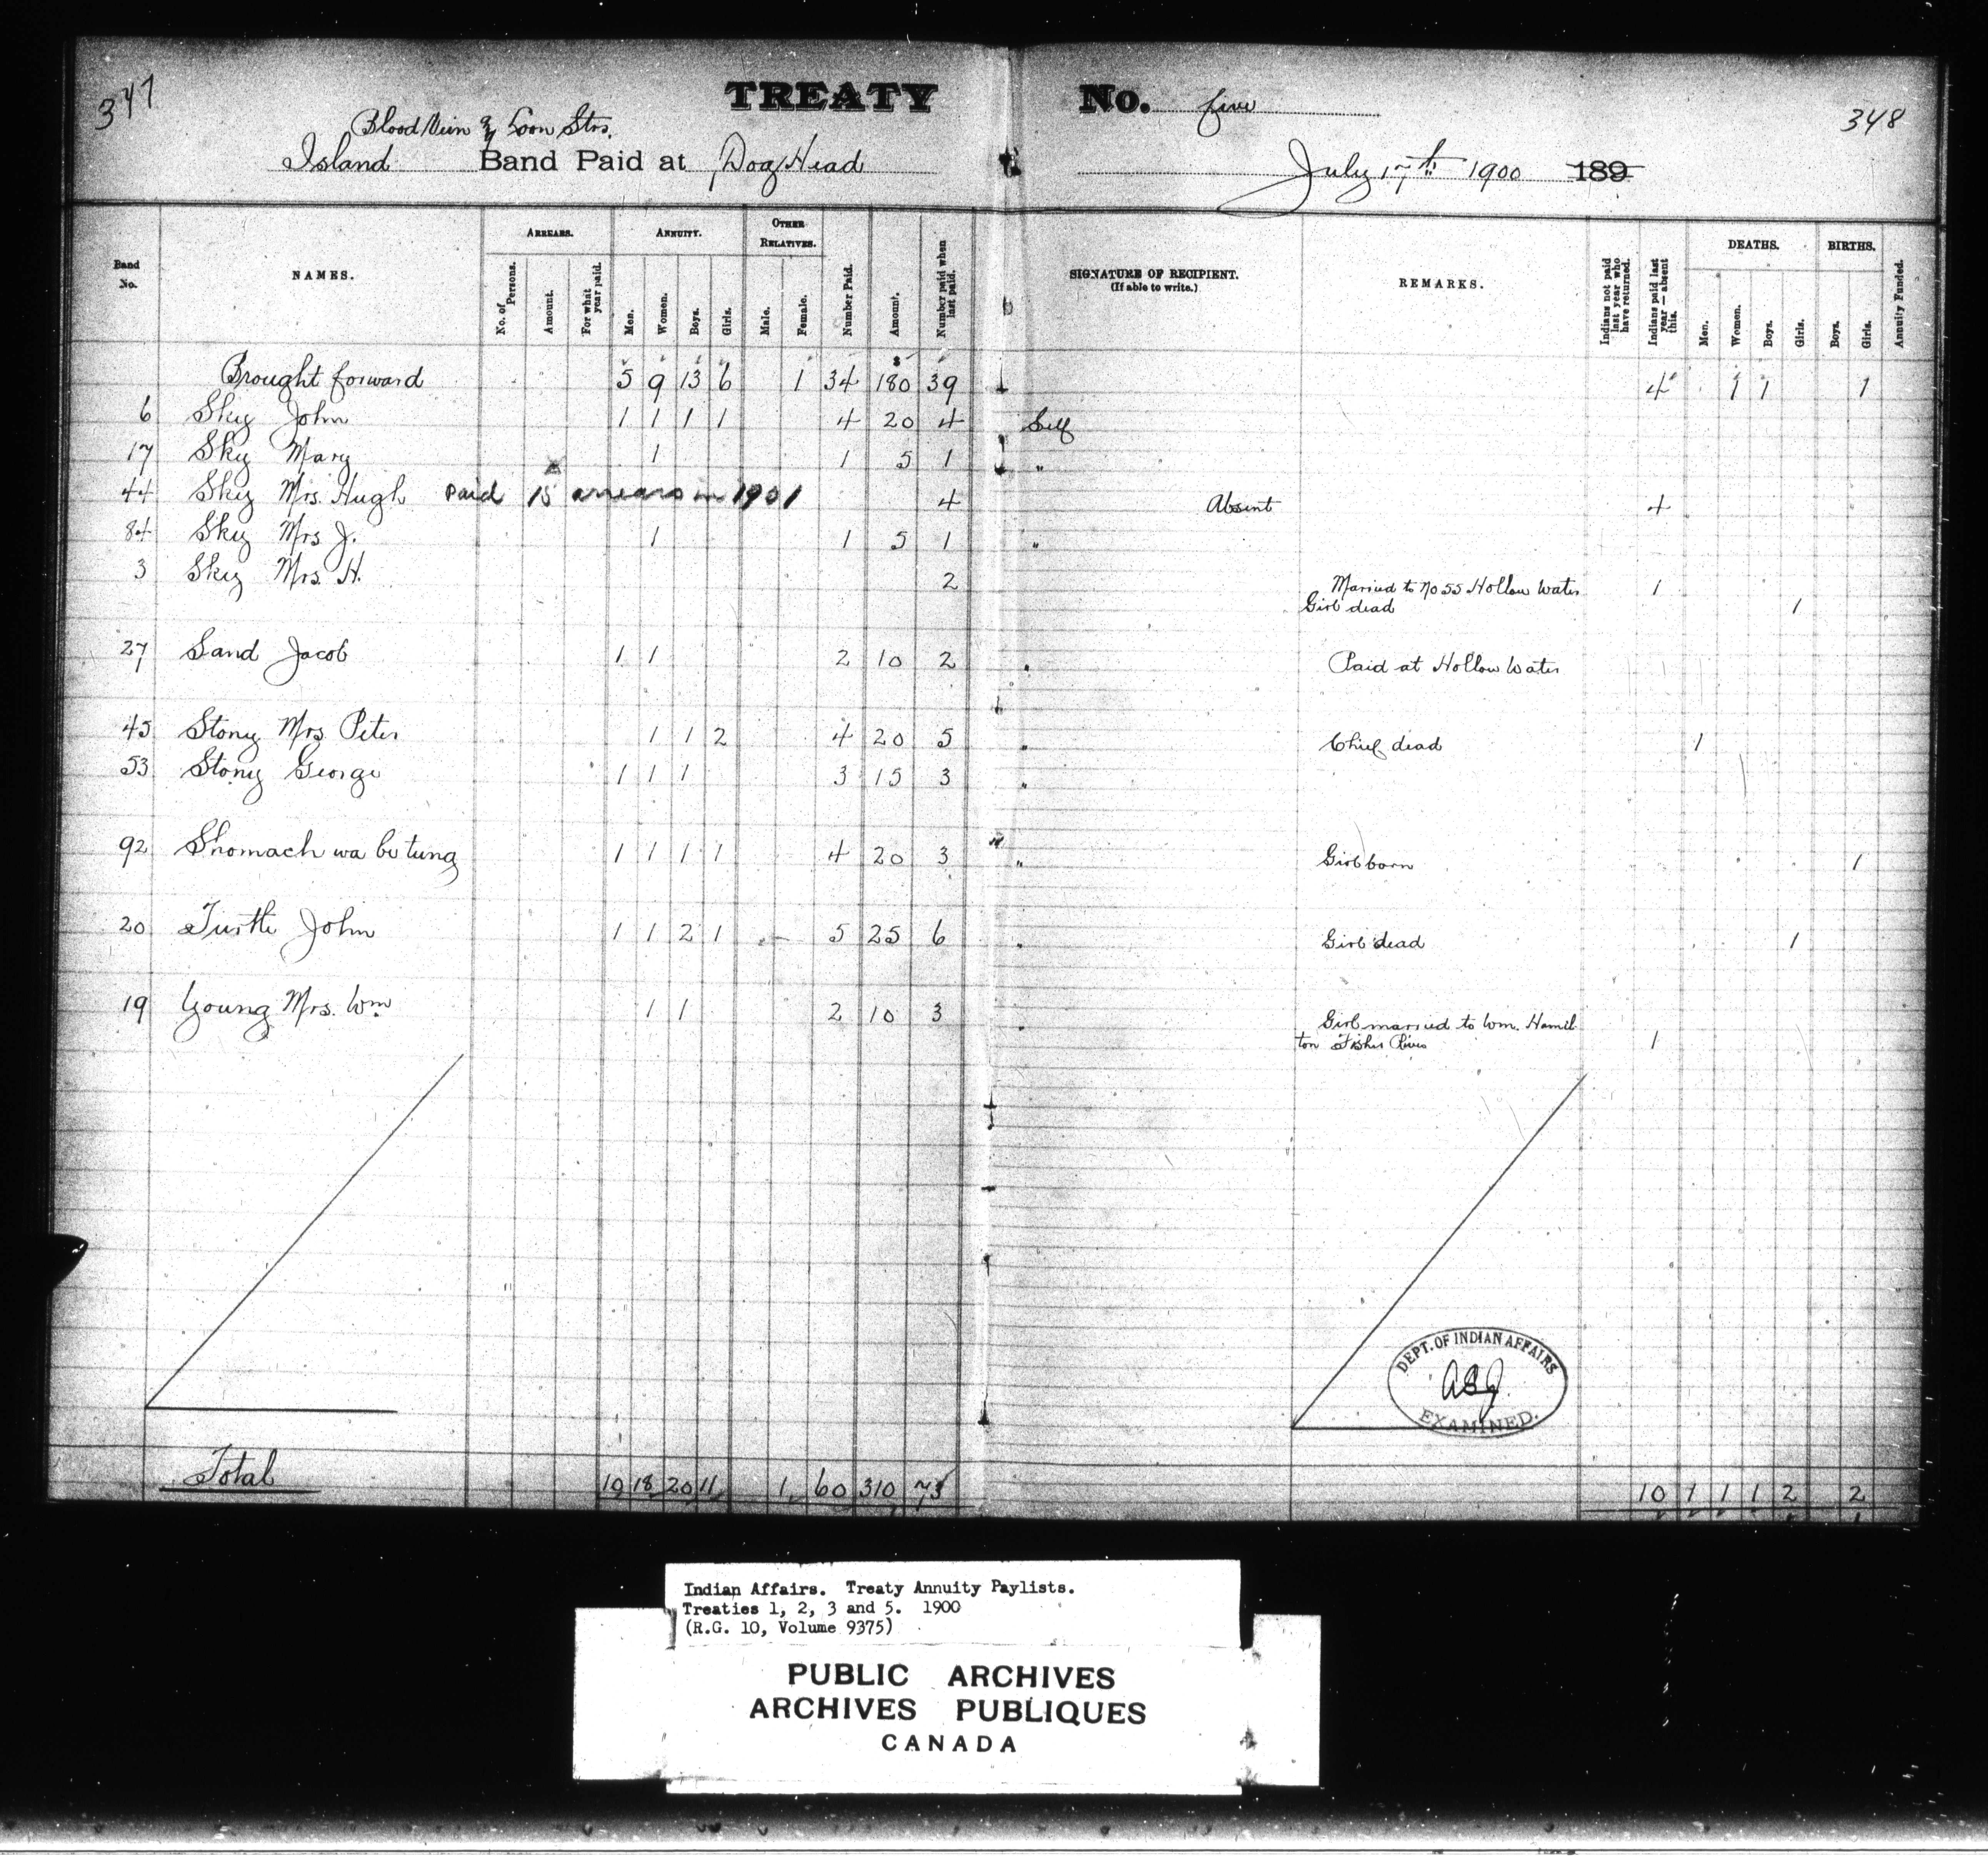 347
TREATY No. five
348
Blood Vein & Loon Strs.
Island Band Paid at Dog Head July 17th 1900 189
Band No.
NAMES.
ARREARS.
No. of Persons.
Amount.
For what year paid.
ANNUITY.
Men.
Women.
Boys.
Girls.
OTHER RELATIVES.
Male.
Female.
Number Paid.
Amount.
Number paid when last paid.
SIGNATURE OF RECIPIENT.
(If able to write.)
REMARKS.
Indians not paid last year who have returned.
Indians paid last year — absent this.
DEATHS.
Men.
Women.
Boys.
Girls.
BIRTHS.
Boys.
Girls.
Annuity Funded.
Brought forward 5 9 13 6 1 34 $180 39 4 1 1 1
6 Sky John 1 1 1 1 4 20 4 Self
17 Sky Mary 1 1 5 1 "
44 Sky Mrs. Hugh paid 15 arrears in 1901 4 Absent 4
84 Sky Mrs J. 1 1 5 1 "
3 Sky Mrs. H. 2 Married to No 55 Hollow Water 1
Girl dead 1
27 Sand Jacob 1 1 2 10 2 " Paid at Hollow Water
45 Stony Mrs Peter 1 1 2 4 20 5 " Chief dead 1
53 Stony George 1 1 1 3 15 3 "
92 Shomach wa be tung 1 1 1 1 4 20 3 " Girl born 1
20 Turtle John 1 1 2 1 5 25 6 " Girl dead 1
19 Young Mrs. Wm 1 1 2 10 3 " Girl married to Wm. Hamil
ton Fisher River 1
DEPT. OF INDIAN AFFAIRS
EXAMINED.
Total 10 18 20 11 1 60 310 73 10 1 1 1 2 2
Indian Affairs. Treaty Annuity Paylists.
Treaties 1, 2, 3 and 5. 1900
(R.G. 10, Volume 9375)
PUBLIC ARCHIVES
ARCHIVES PUBLIQUES
CANADA